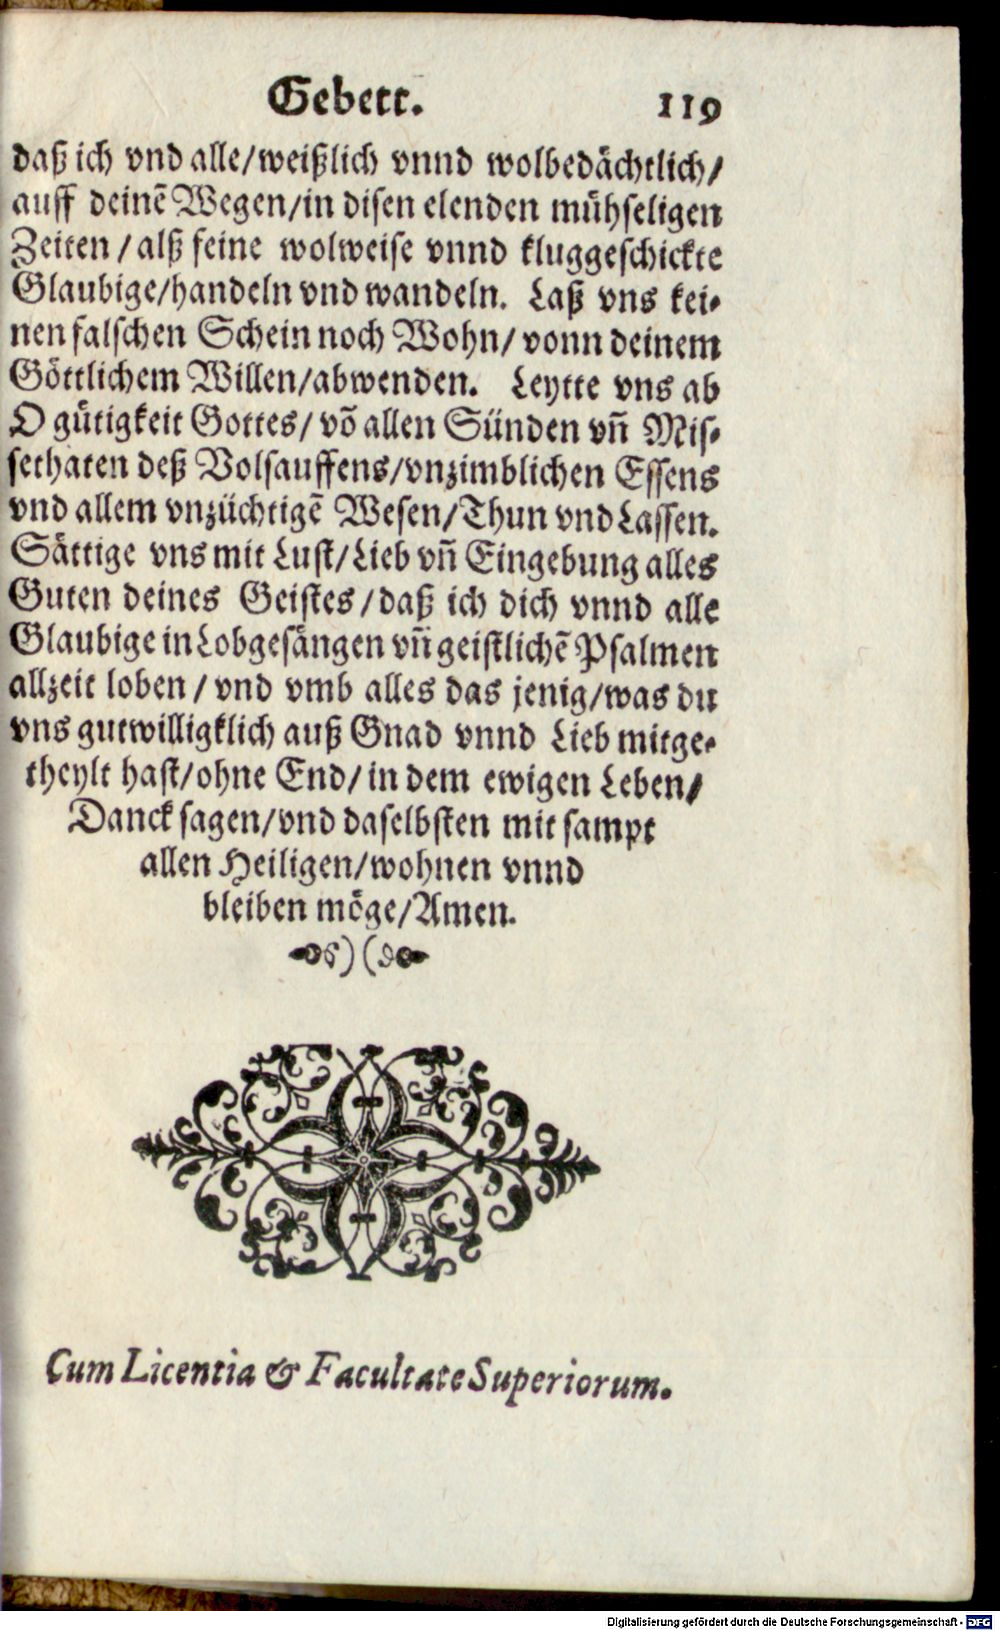 Gebett. 119
daß ich vnd alle/weißlich vnnd wolbedächtlich/
auff deinē Wegen/in disen elenden mühseligen
Zeiten / alß feine wolweise vnnd kluggeschickte
Glaubige/handeln vnd wandeln. Laß vns kei-
nen falschen Schein noch Wohn/ vonn deinem
Göttlichem Willen/abwenden. Leytte vns ab
O gütigkeit Gottes/ võ allen Sünden vñ Mis-
sethaten deß Volsauffens/vnzimblichen Essens
vnd allem vnzüchtigē Wesen/Thun vnd Lassen.
Sättige vns mit Lust/Lieb vñ Eingebung alles
Guten deines Geistes/daß ich dich vnnd alle
Glaubige in Lobgesängen vñ geistlichē Psalmen
allzeit loben / vnd vmb alles das jenig/was du
vns gutwilligklich auß Gnad vnnd Lieb mitge-
theylt hast/ohne End/in dem ewigen Leben/
Danck sagen/vnd daselbsten mit sampt
allen Heiligen/wohnen vnnd
bleiben möge/Amen.
Cum Licentia & Facultate Superiorum.
Digitalisierung gefördert durch die Deutsche Forschungsgemeinschaft - DFG